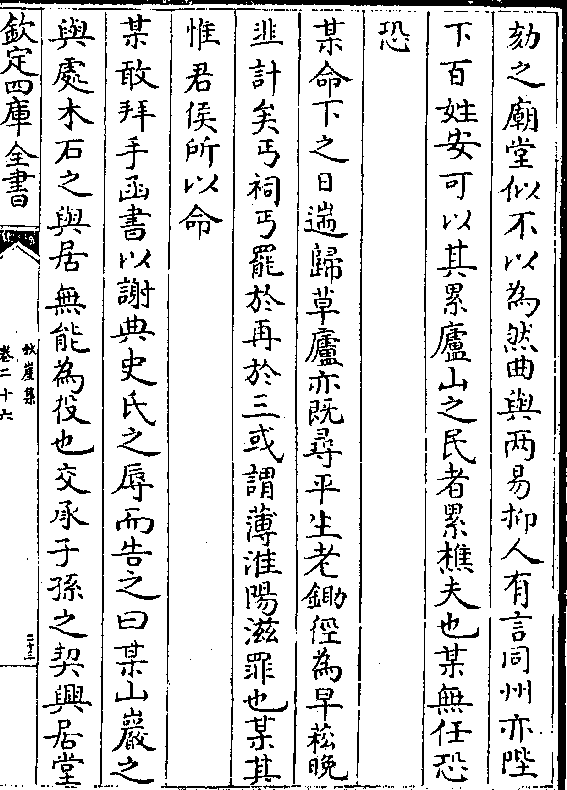 劾之廟堂似不以為然曲與两易抑人有言同州亦陛
下百姓安可以其累廬山之民者累樵夫也某無任恐
恐
某命下之日遄歸草廬亦既尋平生老鋤徑為早菘晚
韭計矣丐祠丐罷於再於三或謂薄淮陽滋罪也某其
惟君侯所以命
某敢拜手函書以謝典史氏之辱而告之曰某山巖之
與處木石之與居無能為役也交承子孫之契興居堂
欽定四庫全書
秋崖集
卷二十六
二十三